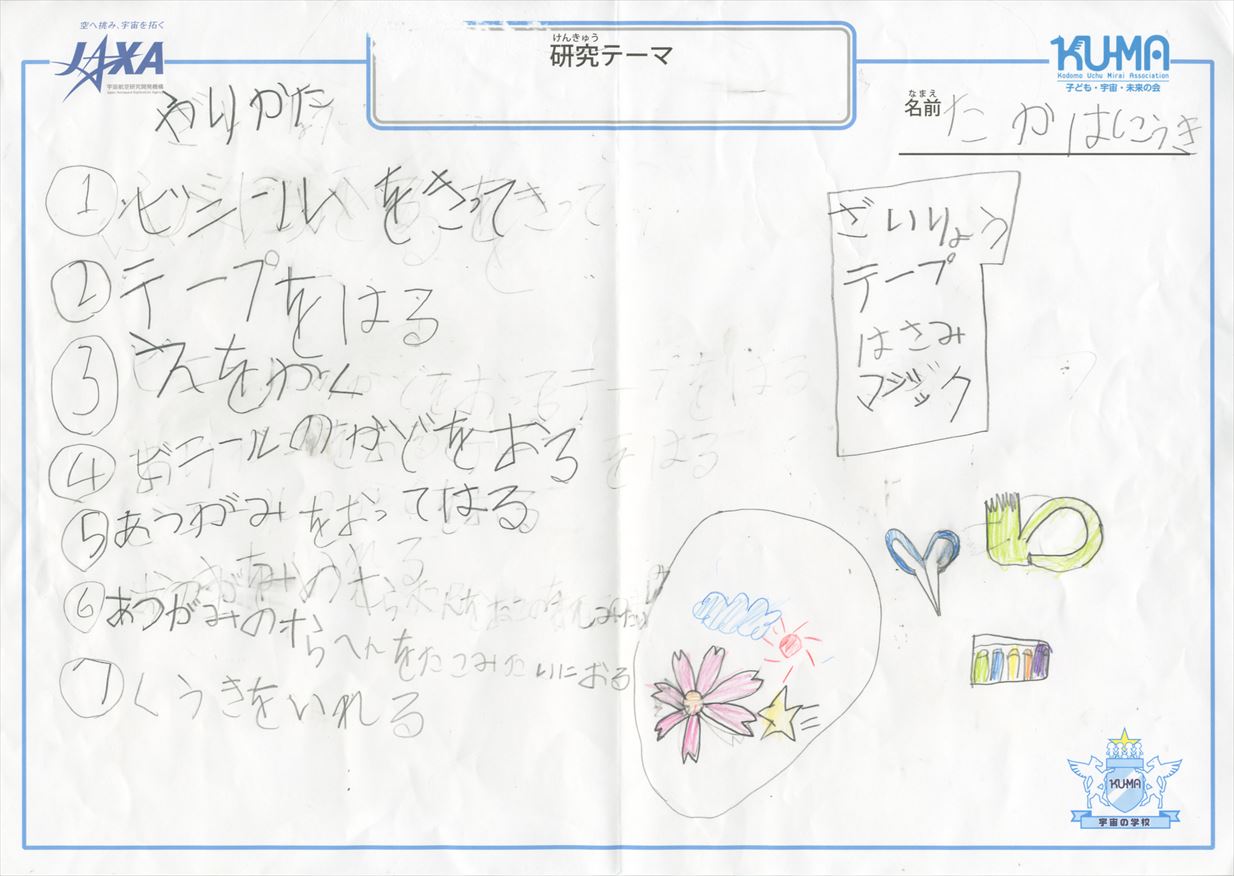 空へ挑み、宇宙を拓く
JAXA
宇宙航空研究開発機構
Japan Aerospace Exploration Agency
けんきゅう
研究テーマ
KU-MA
Kodomo Uchu Mirai Association
子ども・宇宙・未来の会
なまえ
名前 たかはしこうき
やりかた
① ビニールをきって
② テープをはる
③ うえをかく
④ ビニールのかどをおる
⑤ あつがみをおってはる
⑥ あつがみのむらへんをたつみたいにおる
⑦ くうきをいれる
ざいりょう
テープ
はさみ
マジック
KU-MA
宇宙の学校